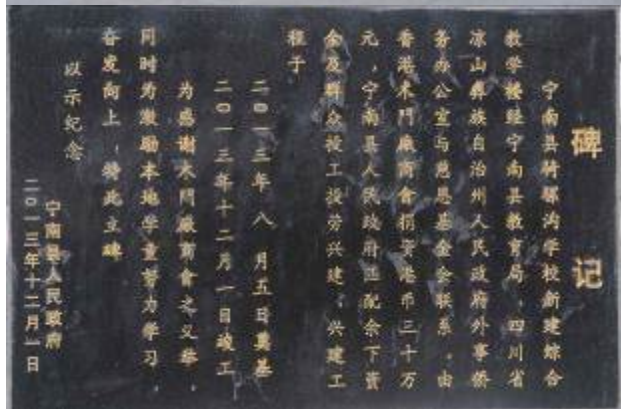 碑记
宁南县骑骡沟学校新建综合
教学楼经宁南县教育局，四川省
凉山彝族自治州人民政府外事侨
务办公室与慈恩基金会联系，由
香港木門廠商會捐资港币三十万
元，宁南县人民政府匹配余下资
金及群众投工投劳兴建，兴建工
程于
二〇一三年八月五日奠基
二〇一三年十二月一日竣工
为感谢木門廠商會之义举，
同时为激励本地学童努力学习，
奋发向上，特此立碑
以示纪念
宁南县人民政府
二〇一三年十二月一日